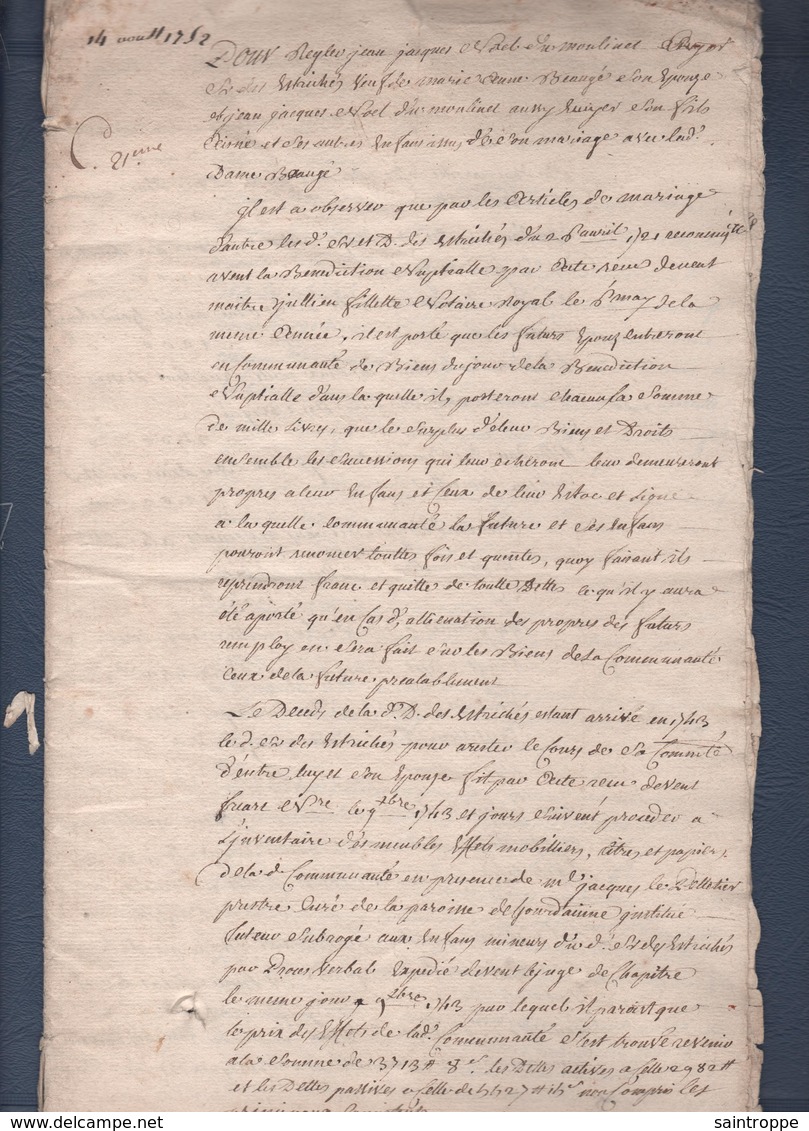 14 aoust 1752
21eme
Pour Regler jean jacques Noel du moulinet
Sr des Estrichés veuf de marie Anne Beaugé son Epouse
et jean jacques Noel du moulinet aussy son fils
et ses autres Enfans issus de son mariage avec lad.
Dame Beaugé
Il est a observer que par les Articles de mariage
d'entre les d. Sr et D. des Estrichés du avril 1721
avent la Benediction Nuptialle par Acte devent
maitre jullien fillette Notaire Royal le may de la
meme Année, il est porté que les futurs Epoux entreront
en Communauté de Biens du jour de la Benediction
Nuptialle dans la quelle ils porteront chacun la Somme
de mille Livres, que le Surplus de leur Biens et Droits
ensemble les Successions qui leur echeront leur demeureront
propres a leur Enfans et Ceux de leur Estoc et Ligne
a la quelle Communauté la future et ses Enfans
pouront renoncer touttes fois et quentes, quoy faisant ils
reprendront franc et quitte de toutte Dettes ce qu'il y aura
été aporté qu'en Cas d'allienation des propres des futurs
remploy en sera fait sur les Biens de la Communauté
Ceux de la future prealablement
Le Deceds de la d. D. des Estrichés estant arrivé en 1743
le d. Sr des Estrichés pour arester le Cours de la Commté
d'entre luy et son Epouse fit par Acte devent
Nre le 9bre 1743 et jours suivent proceder a
L'inventaire des meubles Effets mobilliers, titres et papiers
de la d. Communauté en presence de me jacques le Pelletier
prestre Curé de la paroisse de institué
tuteur Subrogé aux Enfans mineurs du d. Sr des Estrichés
par Proces verbal Expedié devent le juge de Chapitre
le meme jour 9bre 1743 par lequel il paroist que
le prix des Effets de lad. Communauté s'est trouvé revenir
a la Somme de 3713 # 8 s. les Dettes actives a Celle 2982 #
et les Dettes passives a Celle de non Compris les